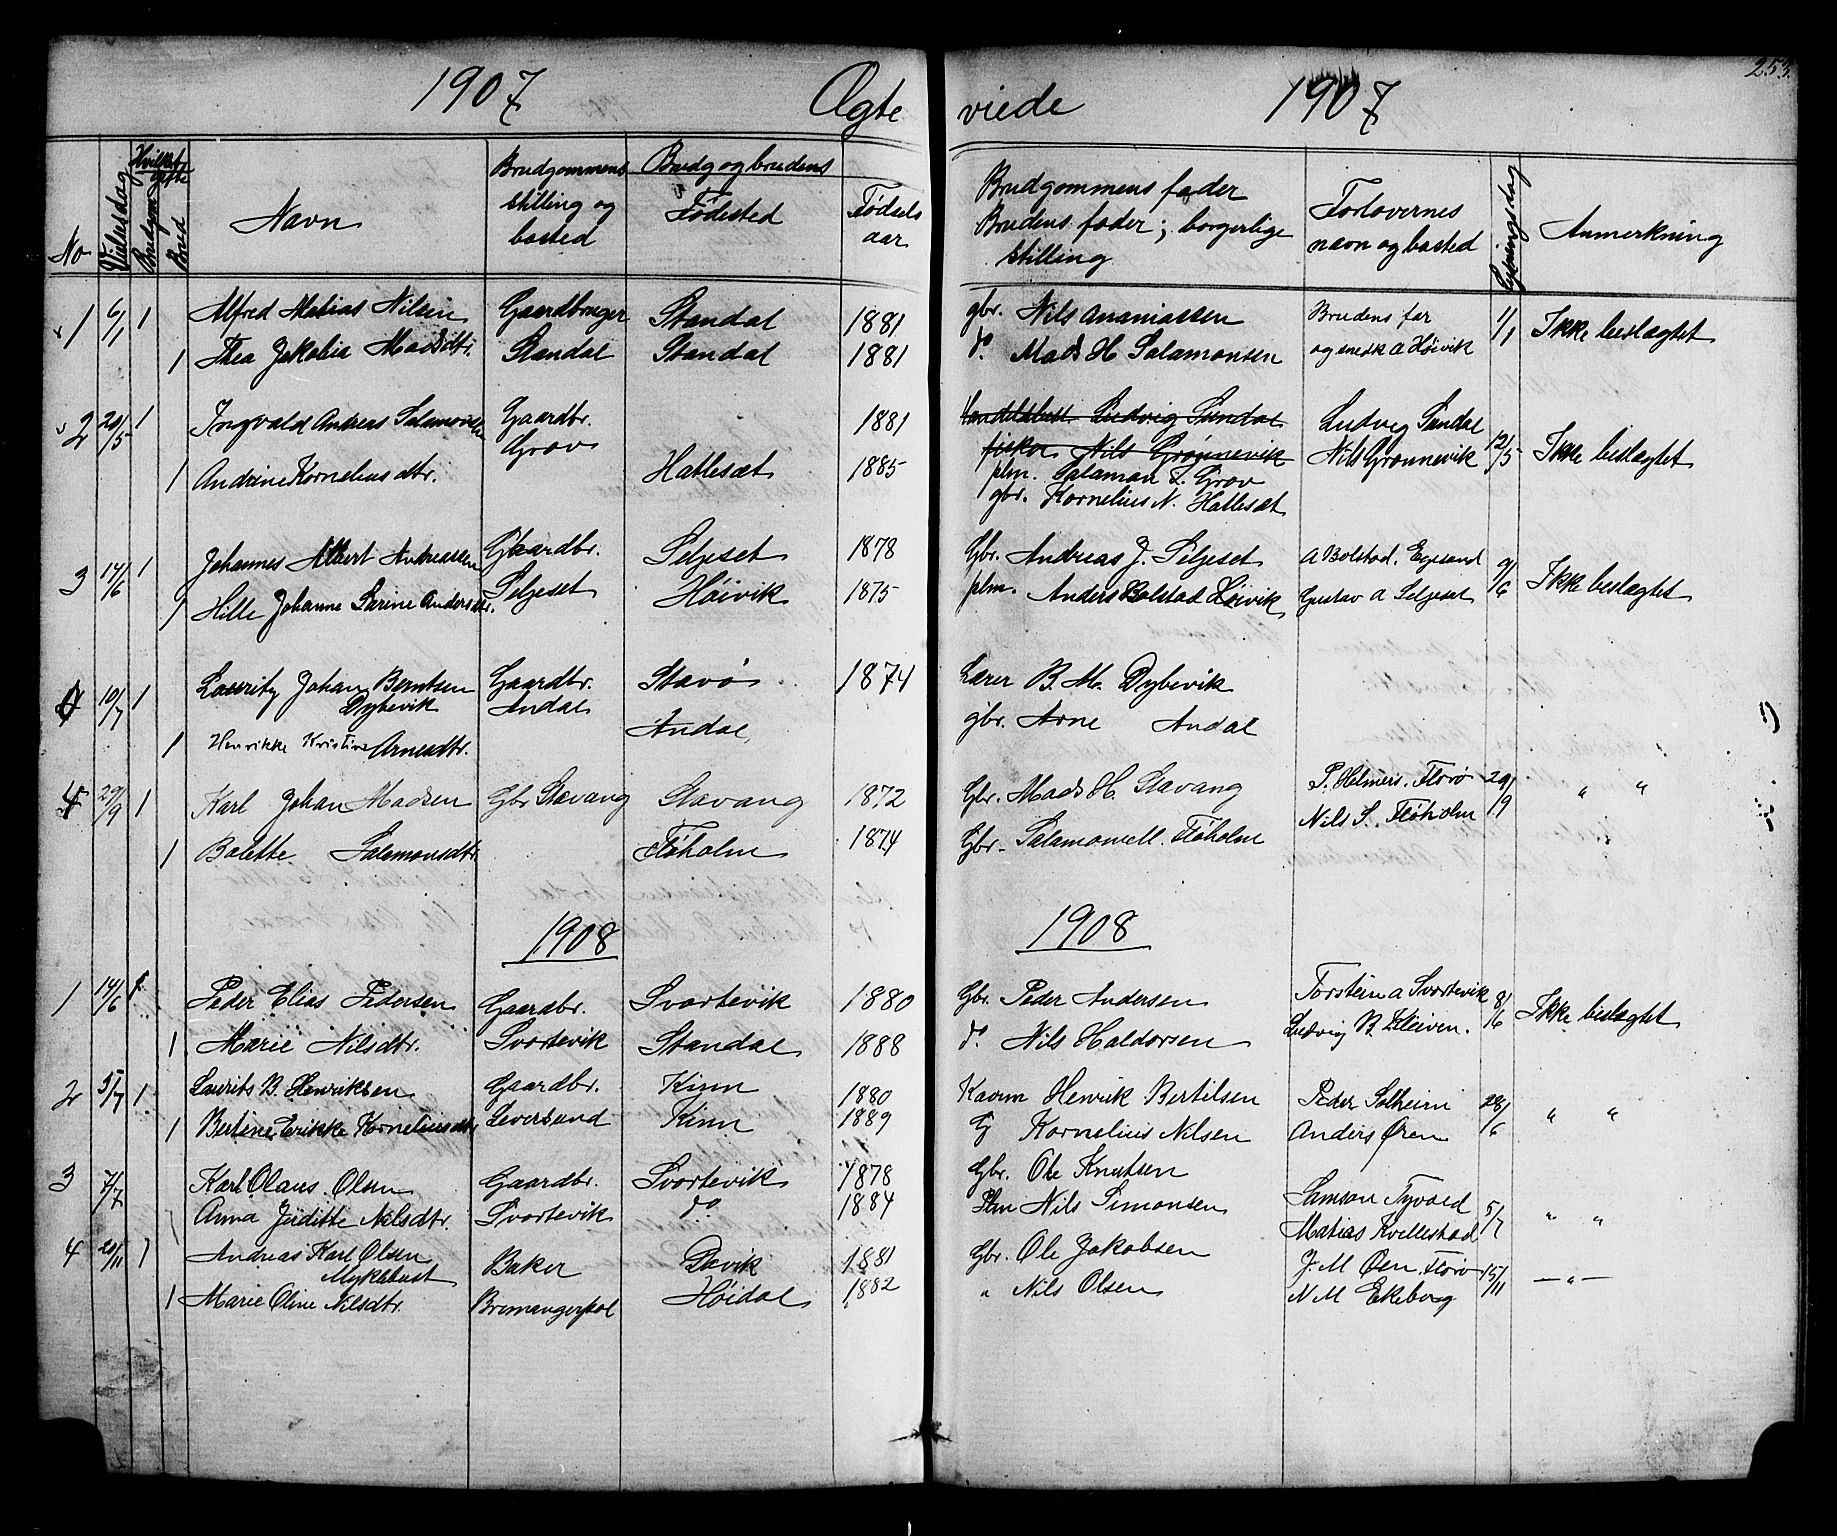 253.
1907 Ægte viede 1907
No Vielsesdag Hvilket Gifte Brudgom Brud Navn Brudgommens stilling og bosted Brudg og brudens Fødested Fødsels aar Brudgommens fader Brudens fader; borgerlige stilling Forlovernes navn og bosted Lysningsdag Anmerkning
1 6/1 1 Alfred Matias Nilsen Gaardbruger Standal 1881 gbr. Nils Ananiassen Brudens far 1/1 Ikke beslægtet
1 Thea Jakobia Madsdtr. Standal Standal 1881 do Mads H. Salamonsen og snedk A Høivik
2 20/5 1 Ingvald Andreas Salamonsen Gaardbr. 1881 Ludvig Sundal Ludvig Sundal 12/5 Ikke beslægtet
Grov fisker Nils Grønnevik Nils Grønnevik
1 Andrine Korneliusdtr. Hatleset 1885 plm. Salamon S. Grov
gbr. Kornelius N. Hatleset
3 14/6 1 Johannes Albert Andreassen Gaardbr. Seljeset 1878 Gbr. Andreas J. Seljeset A Bolstad. Egesund 9/6 Ikke beslægtet
1 Hille Johanne Sarine Andersdtr. Seljeset Høivik 1875 plm. Anders Bolstad Høivik Gustav A Seljeset
4 10/7 1 Lauritz Johan Berntsen Gaardbr. Stavø 1874 Lærer B. M. Dybevik
Dybevik Andal
1 Henrikke Kristine Arnesdtr. Andal gbr. Arne Andal
29/9 1 Karl Johan Madsen Gbr Stavang Stavang 1872 Gbr. Mads H. Stavang P. Helmers. Florø 29/9 " "
1 Bolette Salamonsdtr. Føholm 1874 Gbr. Salamon Føholm Nils S. Føholm
1908 1908
1 14/6 1 Peder Elias Pedersen Gaardbr. Svortevik 1880 Gbr. Peder Andersen Torstein A Svortevik 8/6 Ikke beslægtet
1 Marie Nilsdtr. Svortevik Standal 1888 do Nils Haldorsen Ludvig B. Kleiven.
2 5/7 1 Laurits B. Henriksen Gaardbr. Kinn 1880 Henrik Bertilsen Peder Solheim 28/6 " "
1 Bertine Erikke Korneliusdtr Leversund Kinn 1889 G Kornelius Nilsen Anders Øren
3 7/7 Karl Olaus Olsen Gaardbr. Svortevik 1878 Gbr. Ole Knutsen
Anna Juditte Nilsdtr. Svortevik do 1884 Plm Nils Simonsen Samson Tyvold 5/7 " "
Matias Kvellestad
4 20/11 1 Andreas Karl Olsen Baker Davik 1881 Gbr. Ole Jakobsen J. M Øen. Florø 15/11 — " —
Myklebust
1 Marie Oline Nilsdtr. Bremangerpol Høidal 1882 " Nils Olsen N M Ekeberg